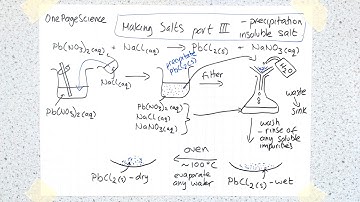 OnePageScience
Making Salts part III
- precipitation, insoluble salt
Pb(NO3)2(aq) + NaCl(aq) → PbCl2(s) + NaNO3(aq)
precipitate
PbCl2(s)
NaCl(aq)
Pb(NO3)2(aq)
filter
H2O
Pb(NO3)2(aq)
NaCl(aq)
NaNO3(aq)
waste
→ sink
wash
- rinse off
any soluble
impurities
oven
~100°C
evaporate
any water
PbCl2(s) - dry
PbCl2(s) - wet